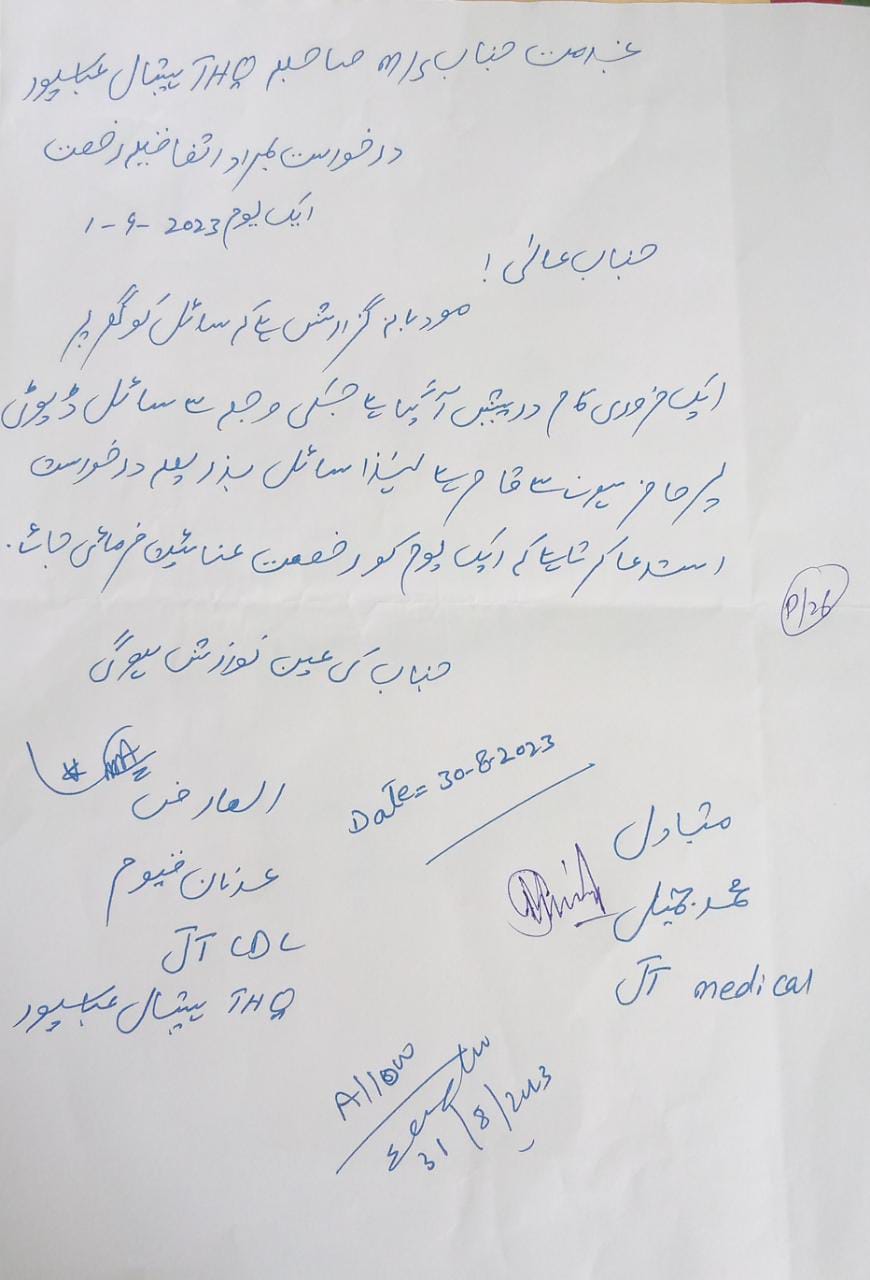 بخدمت جناب m/s صاحب THQ ہسپتال عباسپور
درخواست بمراد اتفاقیہ رخصت
ایک یوم 2023 -9-1
جناب عالی !
مودبانہ گزارش ہے کہ سائل کو گھر پر
ایک ضروری کام درپیش آ گیا ہے جسکی وجہ سے سائل ڈیوٹی
پر حاضر ہونے سے قاصر ہے لہٰذا سائل بذریعہ درخواست
استدعا کرتا ہے کہ ایک یوم کو رخصت عنائیت فرمائی جائے۔
P/26
جناب کی عین نوازش ہوگی
العارض
عدنان قیوم
آل CDC
THQ ہسپتال عباسپور
Date= 30-8-2023
متبادل
محمد جمیل
آل medical
Allow
31/8/2023